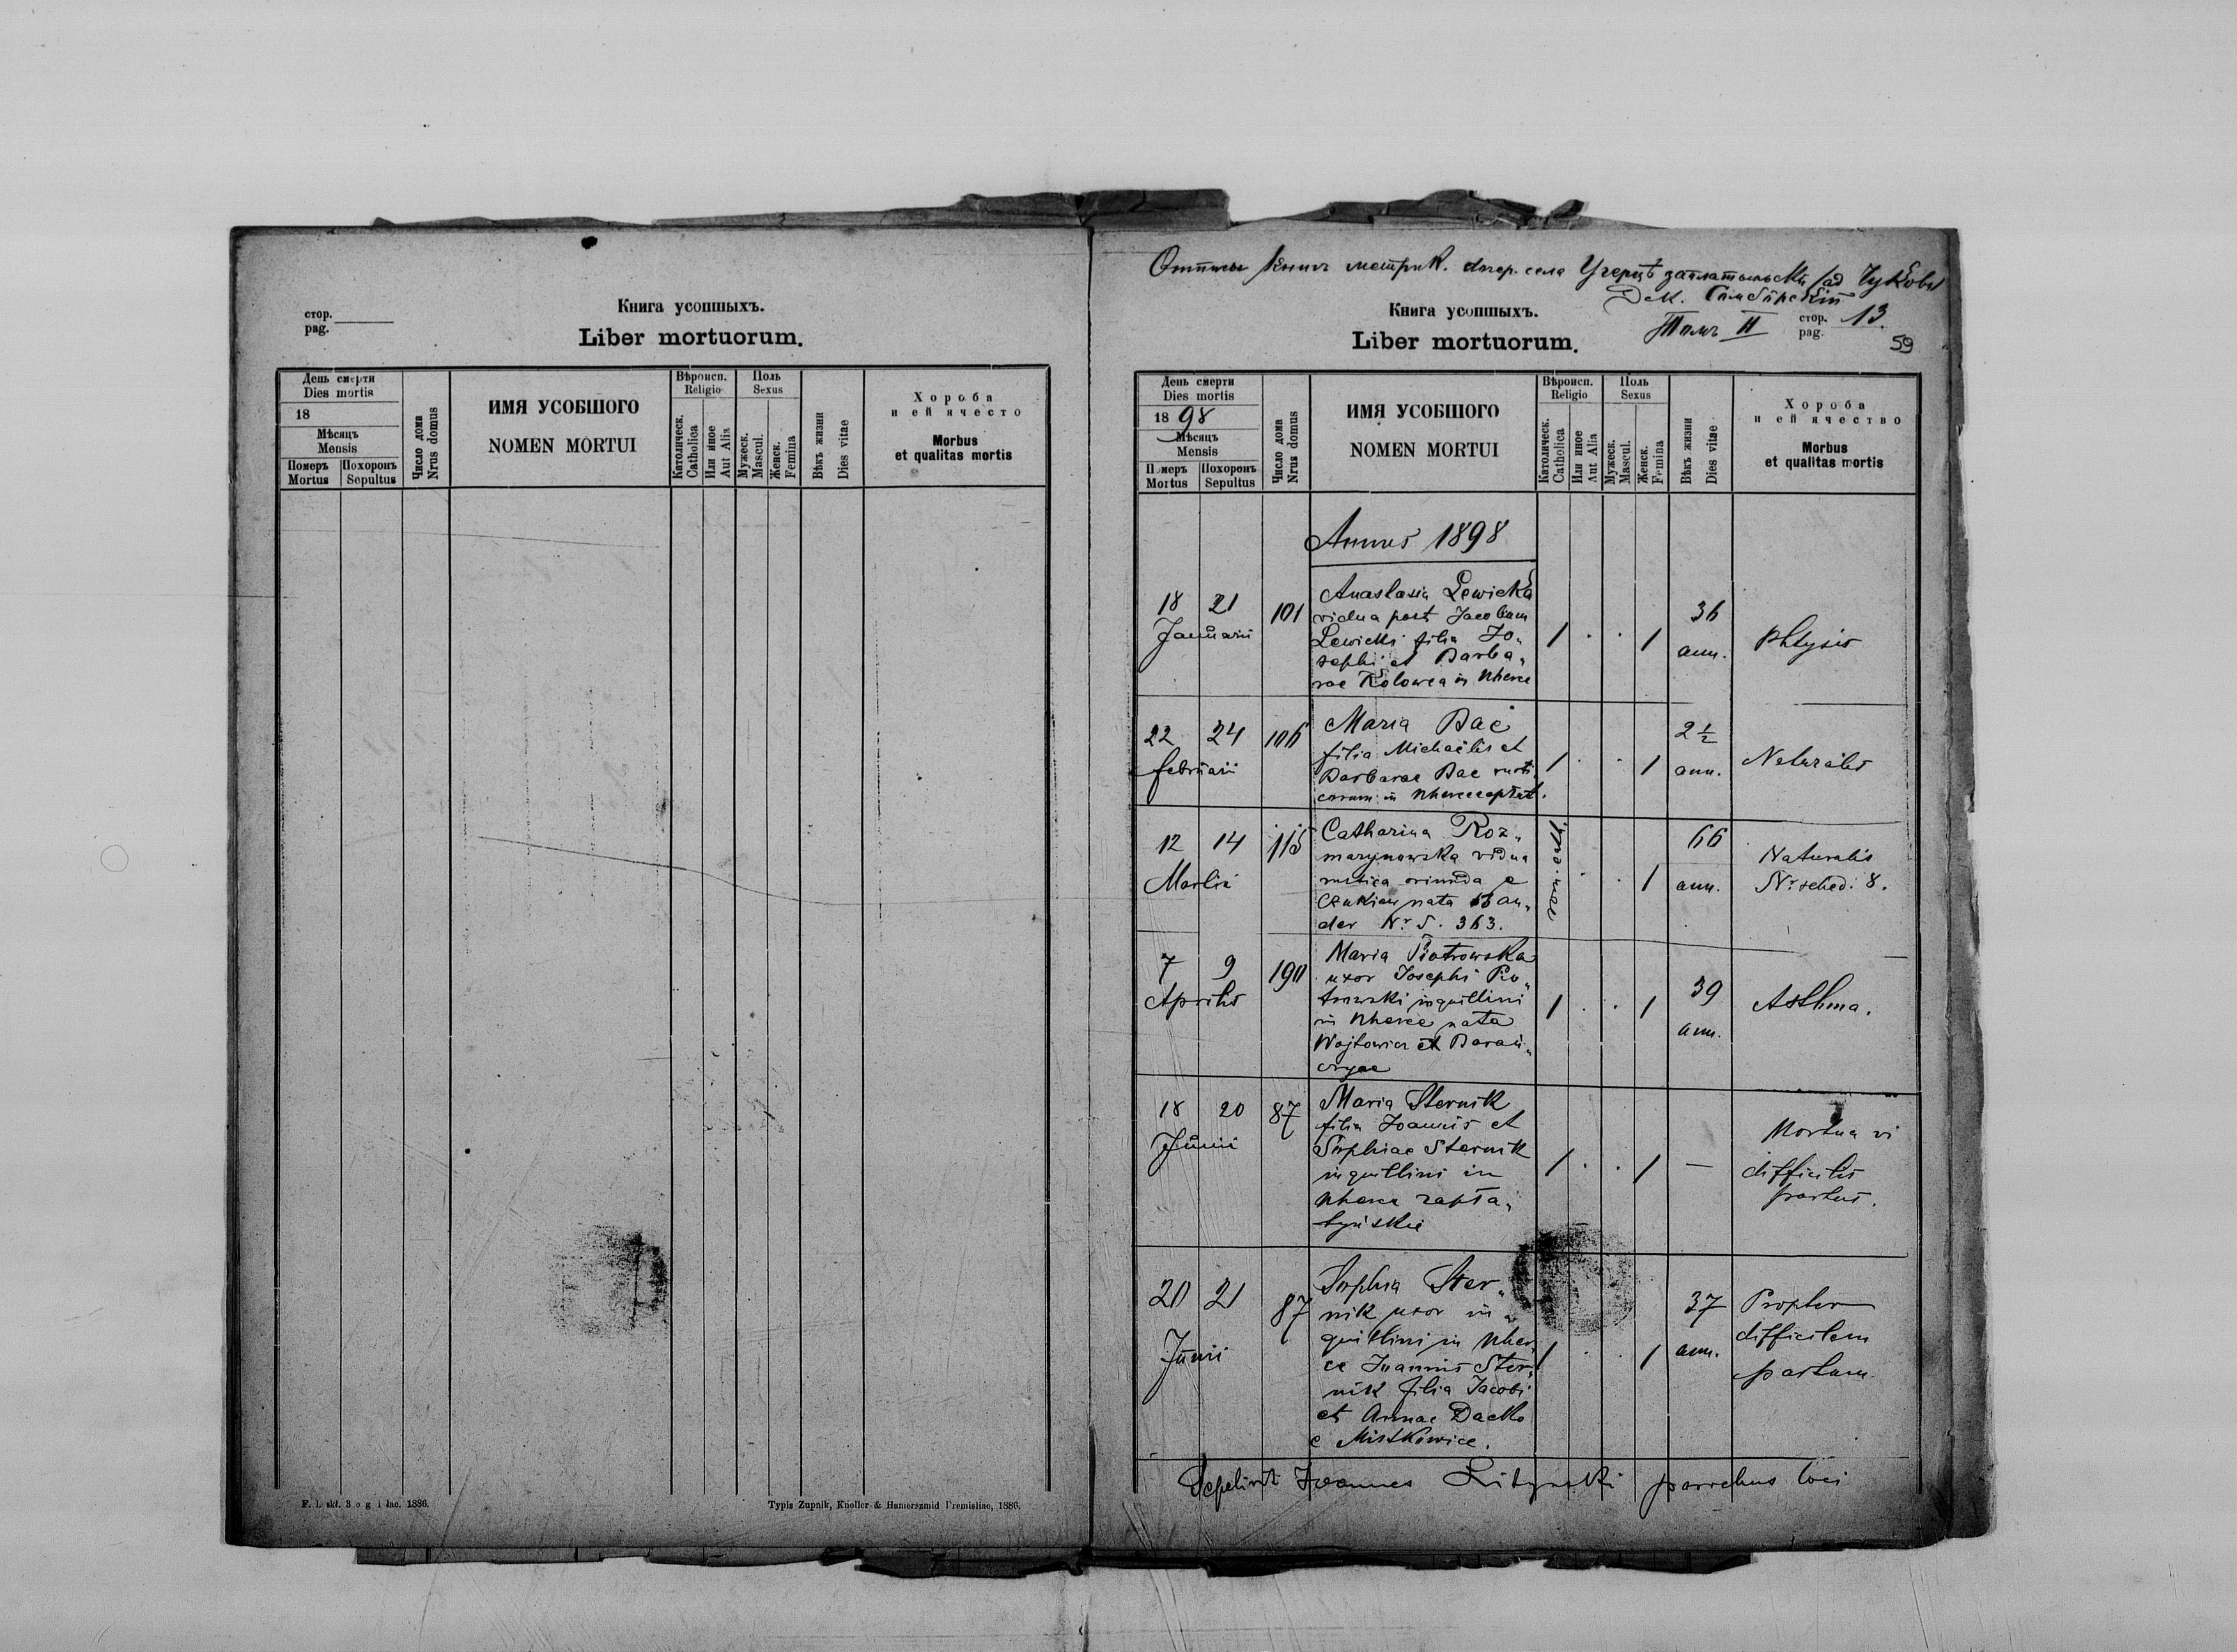 стор.
pag.
Книга усопшыхъ.
Liber mortuorum.
День смерти
Dies mortis
18
Мѣсяцъ
Mensis
Померъ
Mortus
Похоронъ
Sepultus
Число дома
Nrus domus
ИМЯ УСОБШОГО
NOMEN MORTUI
Вѣроисп.
Religio
Католическ.
Catholica
Или иное
Aut Alia
Поль
Sexus
Мужеск.
Mascul.
Женск.
Femina
Вѣкъ жизни
Dies vitae
Хороба
и ей ячесто
Morbus
et qualitas mortis
Typis Zupnik, Knoller & Hamerszmid Premisliae, 1886.
книгъ метрик. села Угерцѣ
Дек.
Томъ II
Книга усопшыхъ.
Liber mortuorum.
стор.
pag.
13
59
День смерти
Dies mortis
1898
Мѣсяцъ
Mensis
Померъ
Mortus
Похоронъ
Sepultus
Число дома
Nrus domus
ИМЯ УСОБШОГО
NOMEN MORTUI
Вѣроисп.
Religio
Католическ.
Catholica
Или иное
Aut Alia
Поль
Sexus
Мужеск.
Mascul.
Женск.
Femina
Вѣкъ жизни
Dies vitae
Хороба
и ей ячество
Morbus
et qualitas mortis
Annus 1898
18 21 101
Januarii
Anastasia Lewicka
vidua post Jacobum
Lewicki filia Jo„
sephi et Barba„
rae in Uherce
1 . . 1
36
ann.
Phtysis
22 24 106
februarii
Maria Bać
filia Michaëlis et
Barbarae Bac rusti
corum in
1 . . 1
2 1/2
ann.
Naturalis
12 14 115
Martii
Catharina Roz„
marynowska vidua
rustica oriunda e
nata Ban„
der Nr. S. 363.
. . 1
66
ann.
Naturalis
Nr. sched. 8.
7 9 190
Aprilis
Maria Piotrowska
uxor Josephi Pio„
trowski inquillini
in Uherce nata
Wojtowicz et
1 . . 1
39
ann.
Asthma.
18 20 87
Junii
Maria Sternik
filia Joannis et
Sophiae Sternik
inquillini in
Uherce zapła„
tyńskie
1 . . 1
—
Mortua vi
difficilis
partus.
20 21 87
Junii
Sophia Ster„
nik uxor in„
quillini in Uher„
ce Joannis Ster„
nik filia Jacobi
et Annae Dacko
e Mistkowice.
1 . . 1
37
ann.
Propter
difficilem
partum.
Sepelivit Joannes Litynski parochus loci